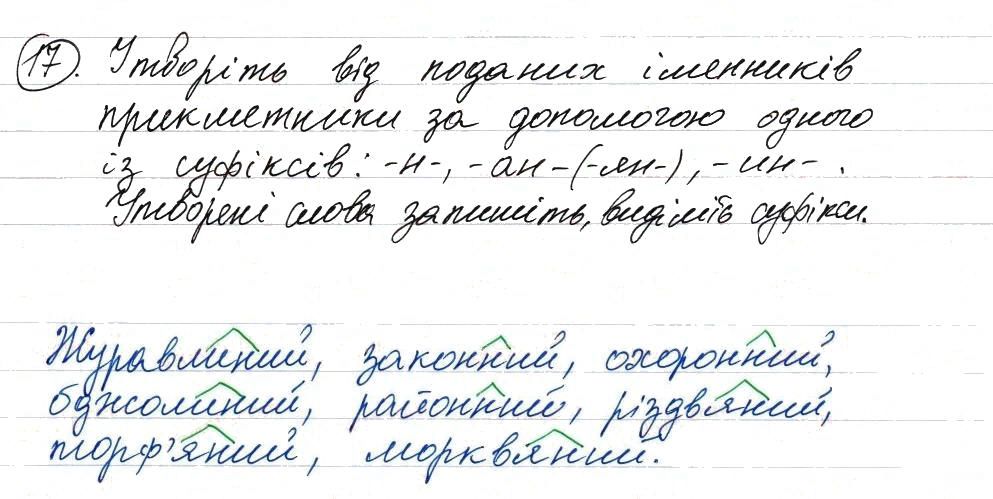 17. Утворіть від поданих іменників
прикметники за допомогою одного
із суфіксів: -н-, -ан-(-ян-), -ин-.
Утворені слова запишіть, виділіть суфікси.
Журавлиний, законний, охоронний,
бджолиний, районний, різдвяний,
торф'яний, морквяний.